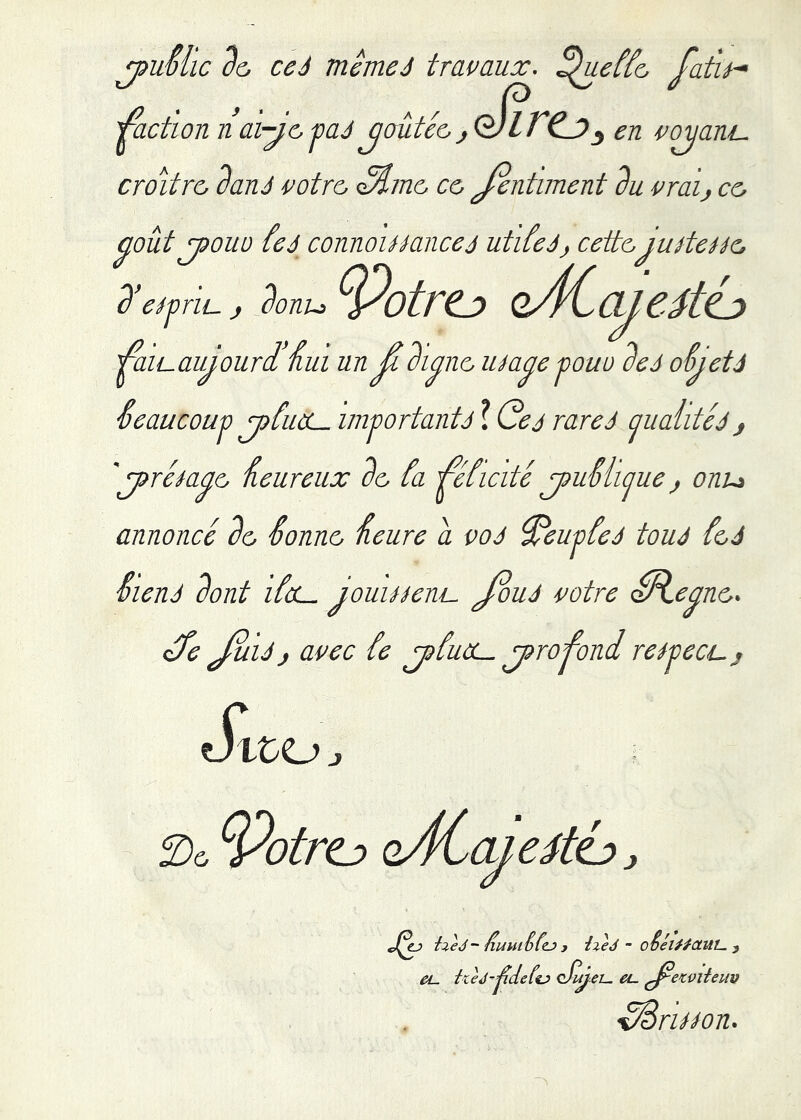 public de ces mêmes travaux. Quelle satis-
faction n'ai-je pas goûtée, Sire, en voyant
croître dans votre Ame ce sentiment du vrai, ce
goût pour les connoissances utiles, cette justesse
d'esprit, dont Votre Majesté
fait aujourd'hui un si digne usage pour des objets
beaucoup plus importants? Ces rares qualités,
présage heureux de la félicité publique, ont
annoncé de bonne heure à vos Peuples tous les
biens dont ils jouissent sous votre Regne.
Je suis, avec le plus profond respect,
Sire,
De Votre Majesté,
Le très-humble, très-obéissant,
et très-fidele Sujet et Serviteur
Brisson.